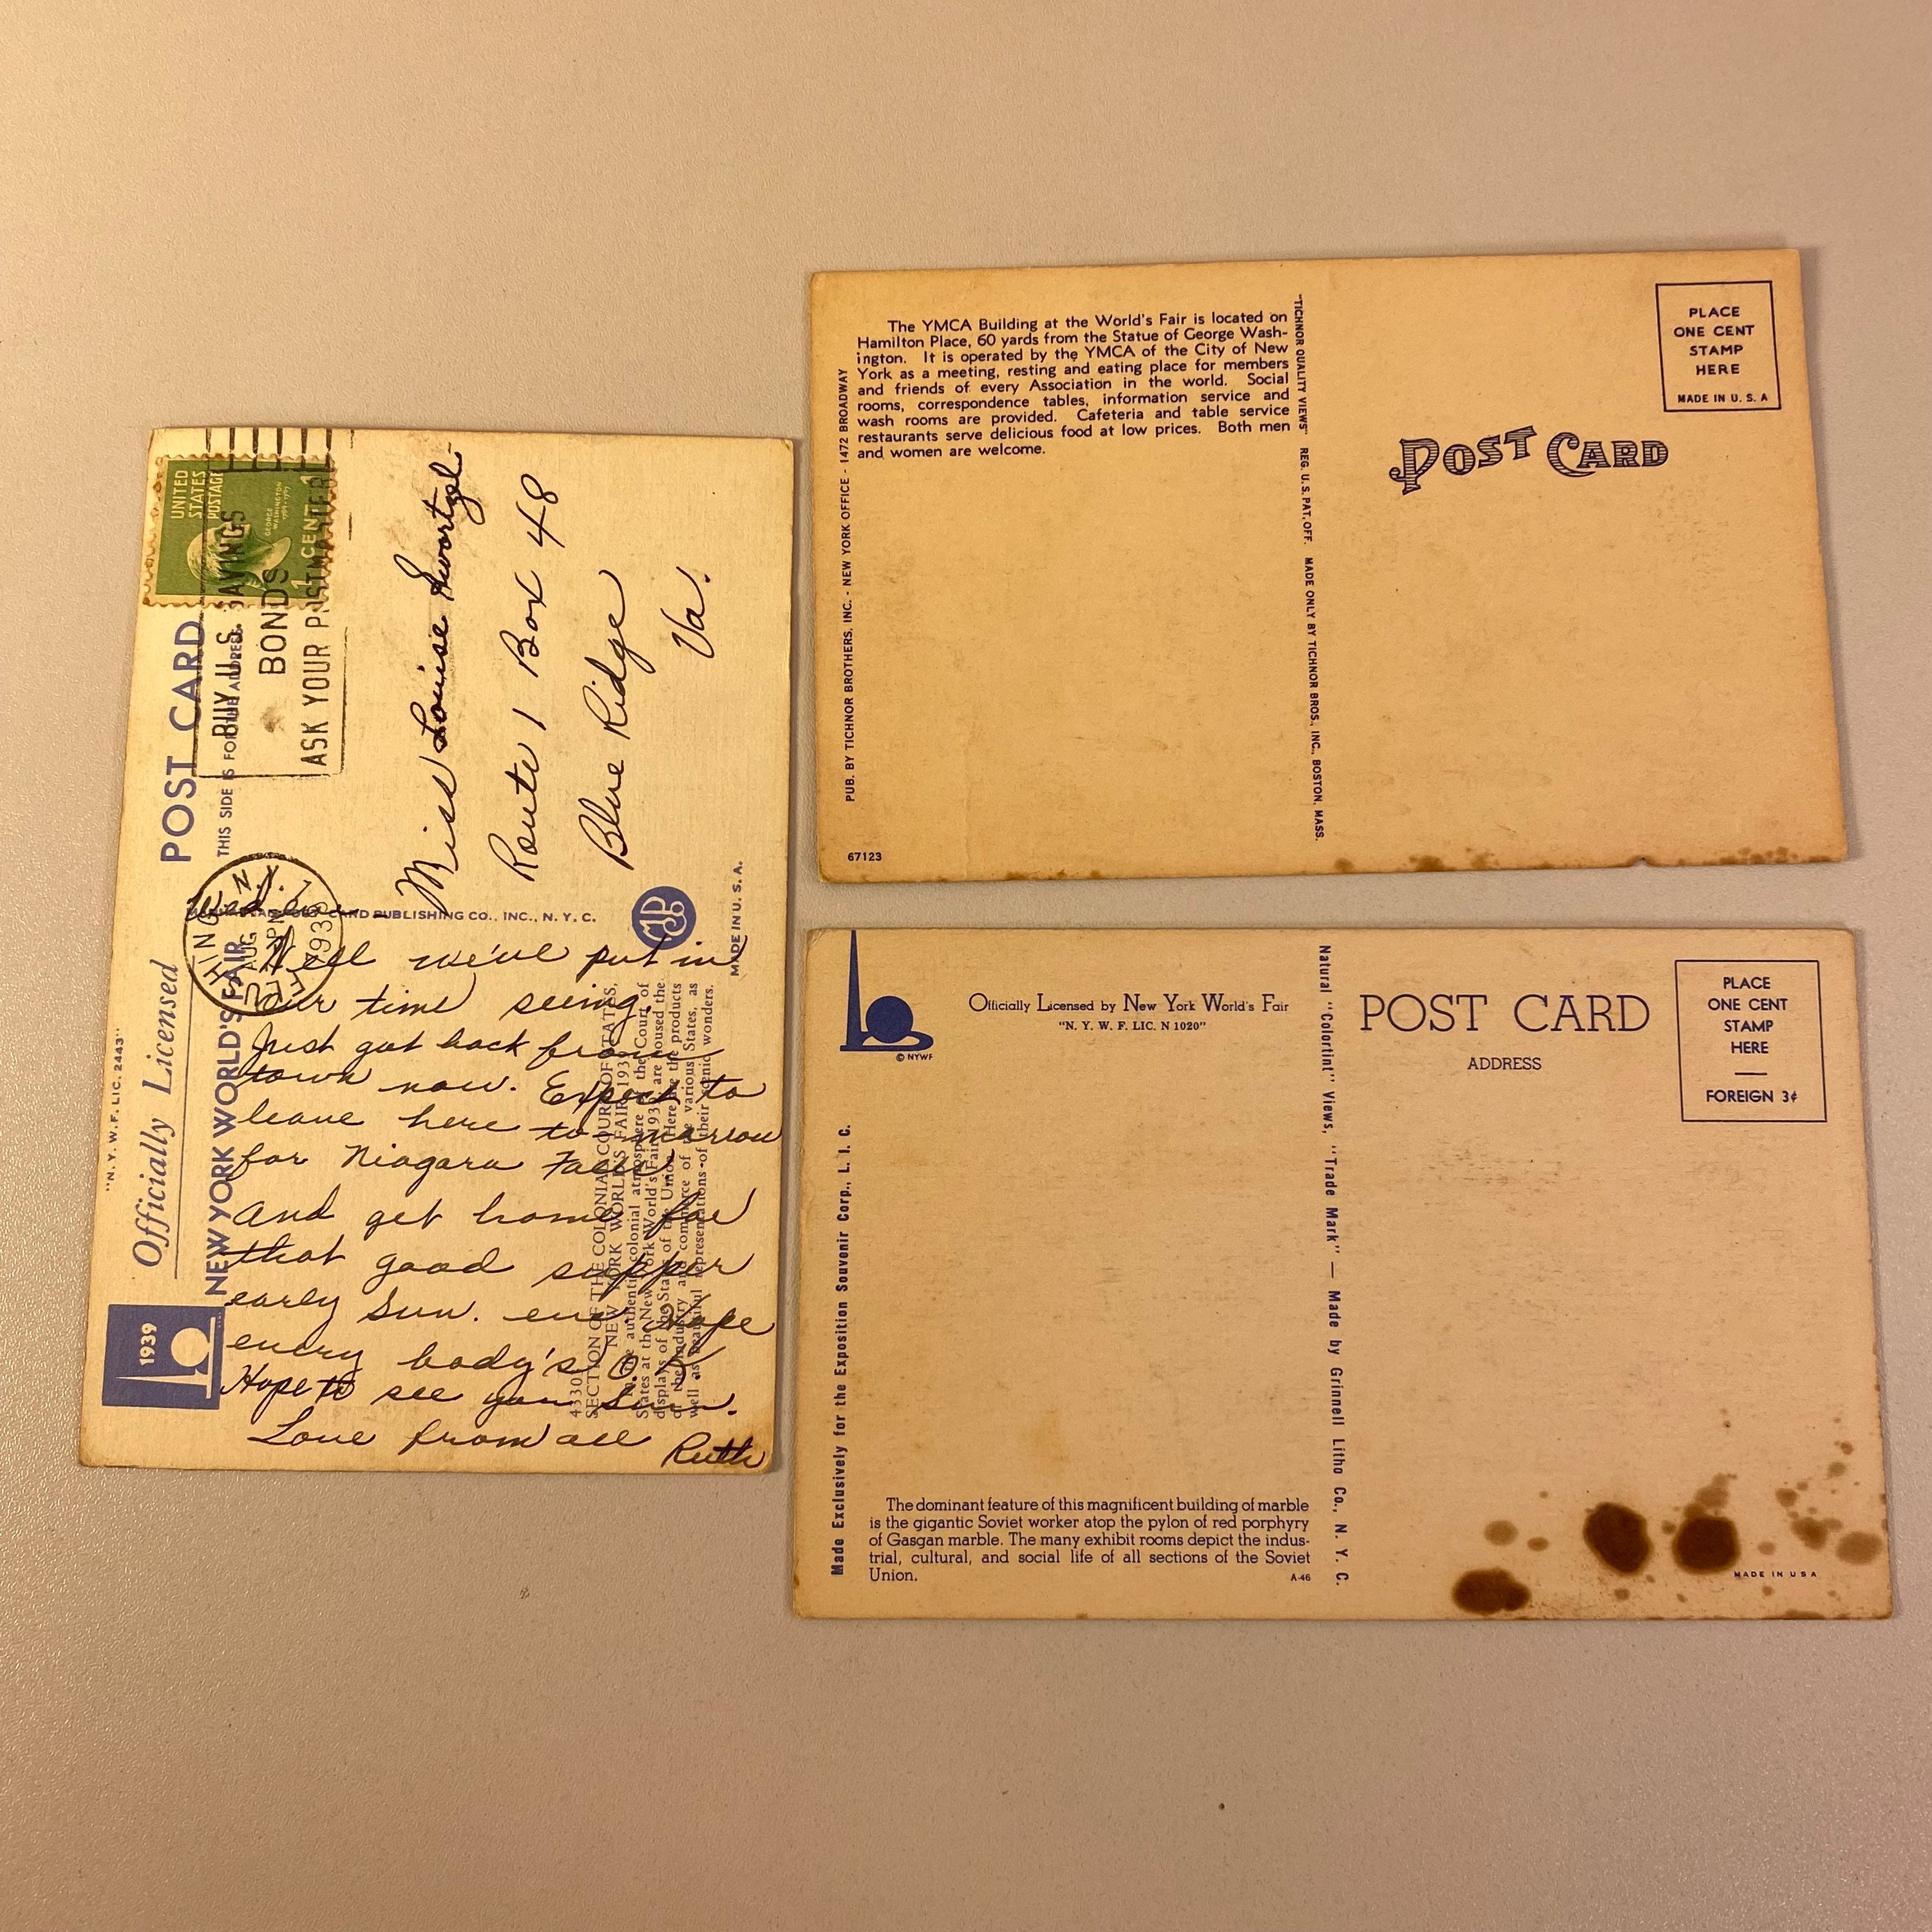 "N. Y. W. F. LIC. 2443"
Officially Licensed
NEW YORK WORLD'S FAIR
1939
POST CARD
THIS SIDE IS FOR THE ADDRESS
UNITED
STATES
POSTAGE
GEORGE
WASHINGTON
1789-1797
1 CENT 1
BUY U.S. SAVINGS
BONDS
ASK YOUR POSTMASTER
AUG
1939
N.Y.
Miss Louise Swortzel
Route 1 Box 48
Blue Ridge
Va.
CARD PUBLISHING CO., INC., N. Y. C.
MADE IN U. S. A.
Wed. eve
Well we've put in
our time seeing.
Just got back from
town now. Expect to
leave here to-morrow
for Niagara Falls
And get home for
that good supper
early Sun. eve Hope
every body's O.K.
Hope to see you Sun.
Love from all
Ruth
SECTION OF THE COLONIAL COURT OF STATES,
NEW YORK WORLD'S FAIR 1939
In the authentic colonial atmosphere of the Court of
States at the New York World's Fair 1939 are housed the
displays of the States of the Union. Here are the products
of the industry and commerce of the various States, as
well as beautiful representations of their scenic wonders.
PUB. BY TICHNOR BROTHERS, INC. - NEW YORK OFFICE - 1472 BROADWAY
The YMCA Building at the World's Fair is located on
Hamilton Place, 60 yards from the Statue of George Wash-
ington. It is operated by the YMCA of the City of New
York as a meeting, resting and eating place for members
and friends of every Association in the world. Social
rooms, correspondence tables, information service and
wash rooms are provided. Cafeteria and table service
restaurants serve delicious food at low prices. Both men
and women are welcome.
67123
"TICHNOR QUALITY VIEWS" REG. U. S. PAT. OFF. MADE ONLY BY TICHNOR BROS., INC., BOSTON, MASS.
POST CARD
PLACE
ONE CENT
STAMP
HERE
MADE IN U. S. A
© NYWF
Officially Licensed by New York World's Fair
"N. Y. W. F. LIC. N 1020"
Made Exclusively for the Exposition Souvenir Corp., L. I. C.
The dominant feature of this magnificent building of marble
is the gigantic Soviet worker atop the pylon of red porphyry
of Gasgan marble. The many exhibit rooms depict the indus-
trial, cultural, and social life of all sections of the Soviet
Union.
A-46
Natural "Colortint" Views, "Trade Mark" — Made by Grinnell Litho Co., N. Y. C.
POST CARD
ADDRESS
PLACE
ONE CENT
STAMP
HERE
—
FOREIGN 3¢
MADE IN USA